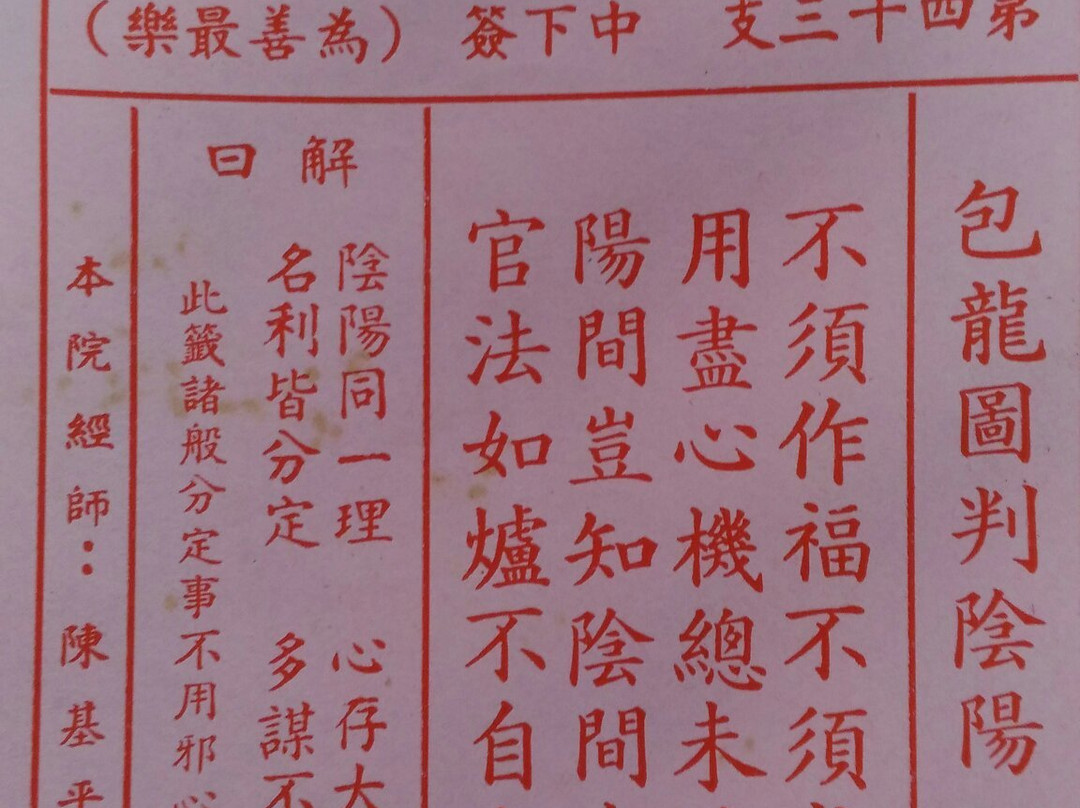 第四十三支 中下簽 (為善最樂)
包龍圖判陰陽
不須作福不須
用盡心機總未
陽間豈知陰間
官法如爐不自
解曰
陰陽同一理 心存大
名利皆分定 多謀不
此籤諸般分定事不用邪心
本院經師：陳基平